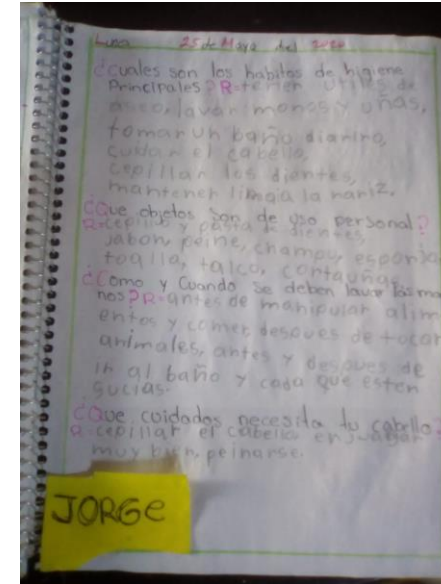 Luna 25 de Mayo del 2020
¿cuales son los habitos de higiene
Principales? R=tener utiles de
aseo, lavar manos y uñas,
tomar un baño diarino,
cuidar el cabello,
cepillar los dientes,
mantener limpia la nariz.
¿Que objetos son de uso personal?
R=cepillo y pasta de dientes,
jabon, peine, champu, esponja
toalla, talco, cortauñas
¿Como y Cuando se deben lavar las ma
nos? R=antes de manipular alim
entos y comer, despues de tocar
animales, antes y despues de
ir al baño y cada que esten
sucias.
¿Que cuidados necesita tu cabello?
R=cepillar el cabello enjuagar
muy bien, peinarse.
JORGe